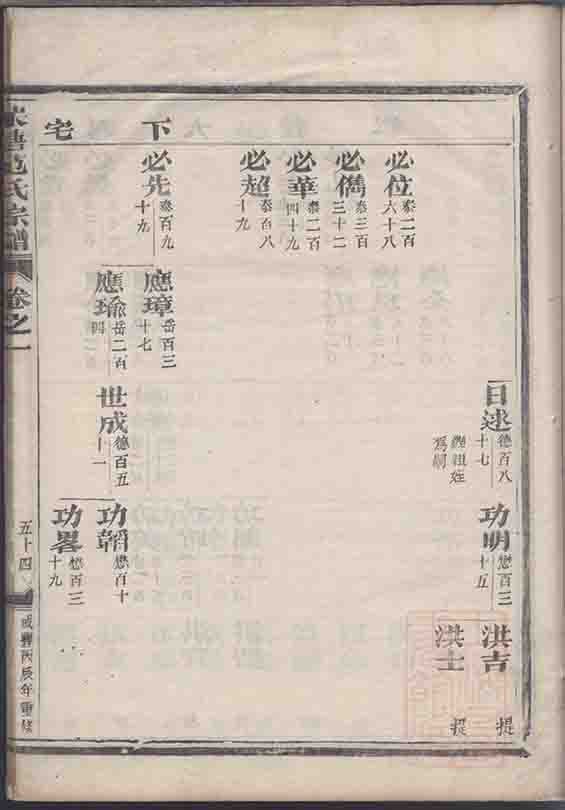 日逑 德百八十七
繼祖姪爲嗣
功明 懋百三十五
洪吉 提
洪士 提
必位 泰二百六十八
必儁 泰三百三十二
必華 泰二百四十九
必超 泰百八十九
下
必先 泰百九十九
應璋 岳百三十七
應瑜 岳二百四
世成 德百五十一
功韜 懋百十
功畧 懋百三十九
宅
范氏宗譜
卷之一
五十四
咸豐丙辰年重修